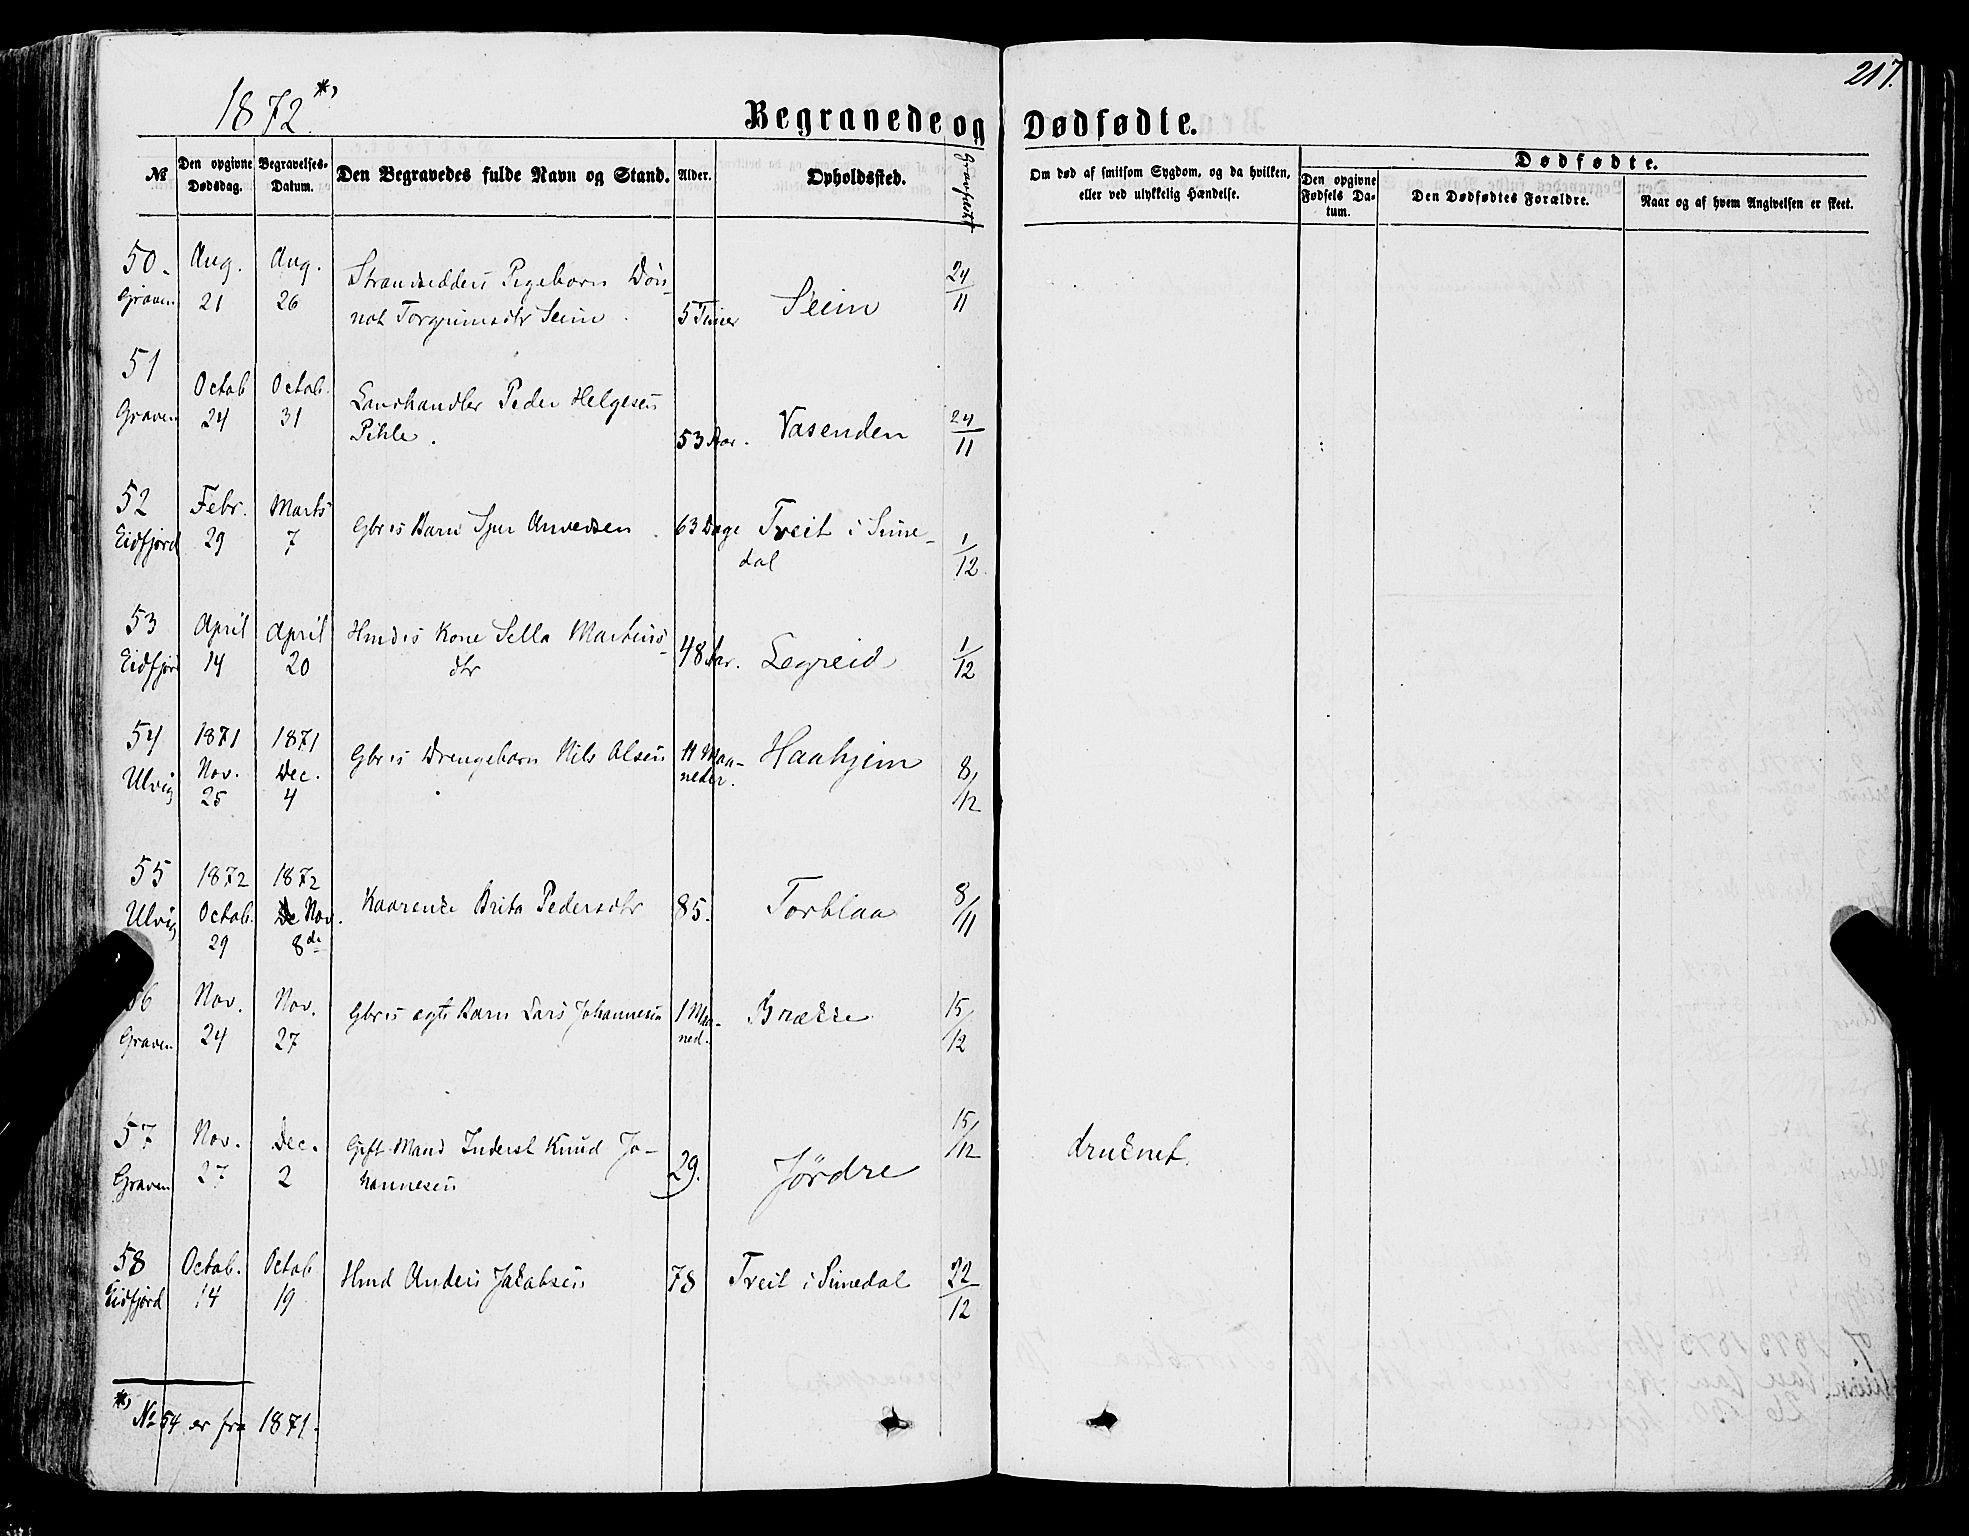 217.
1872 *)
Begravede og Dødfødte.
№
Den opgivne Dødsdag.
Begravelses-Datum.
Den Begravedes fulde Navn og Stand.
Alder.
Opholdssted.
Om død af smitsom Sygdom, og da hvilken, eller ved ulykkelig Hændelse.
Dødfødte.
Den opgivne Fødsels Datum.
Den Dødfødtes Forældre.
Naar og af hvem Angivelsen er skeet.
50. Aug. Aug. Strandsidders Pigebarn
Graven 21 26 Torgrimsdtr Seim. 5 Timer Seim 24/11
51 Octob Octob. Landhandler Peder Helgesen
Graven 24 31 Pihle. 53 Aar. Vasenden 24/11
52 Febr. Marts Gbrs Barn Amundsen 63 Dage Tveit i Sime-
Eidfjord 29 7 dal 1/12
53 April April Hmds Kone Sella Martins-
Eidfjord 14 20 dtr 48 Aar. Legreid 1/12
54 1871 1871 Gbrs Drengebarn Nils Olsen 11 Maa- Haahjem 8/12
Ulvig Nov. Dec. neder.
25 4
55 1872 1872
Ulvig Octob. De Nov. Brita Pedersdtr 85. Torblaa 8/11
29 8de
56 Nov. Nov. Gbrs ægte Barn Lars Johannesen 1 Maa- Brække 15/12
Graven 24 27 ned.
57 Nov. Dec. Gift Mand Inderst Knud Jo- 15/12 druknet.
Graven 27 2 hannesen 29. Jørdre
58 Octob. Octob Hmd Anders Jakobsen 78 Tveit i Simedal 22/12
Eidfjord 14 19
*) № 54 er fra 1871.